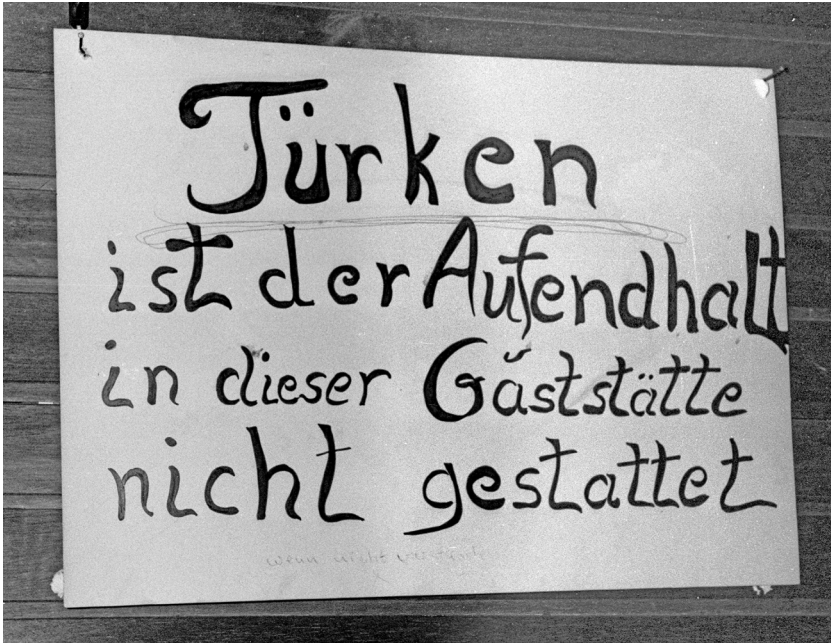 Türken
ist der Aufendhalt
in dieser Gaststätte
nicht gestattet
wenn nicht